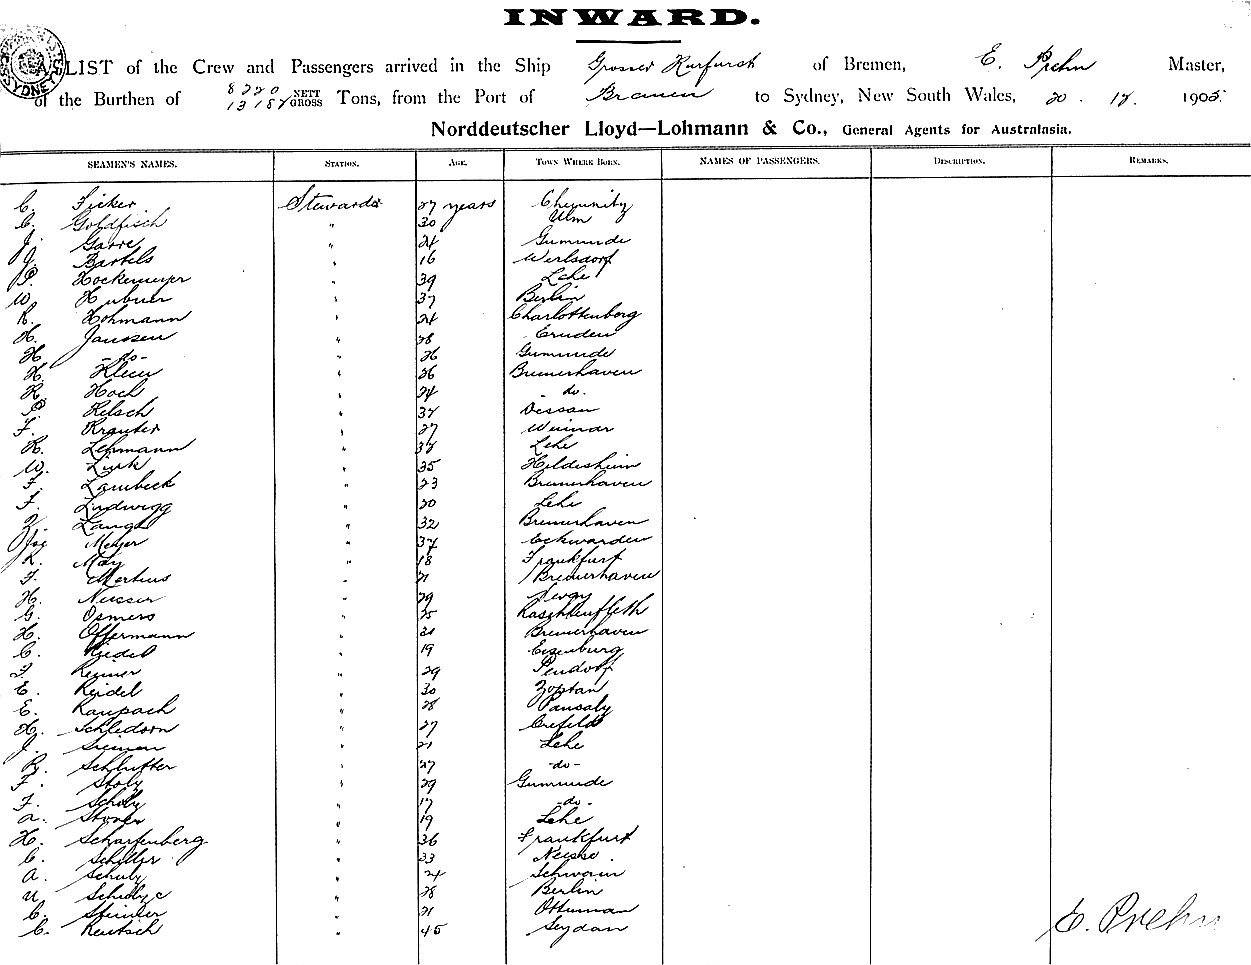 INWARD.
A LIST of the Crew and Passengers arrived in the Ship Grosser Kurfurst of Bremen, E. Prehn Master,
of the Burthen of 8220 NETT 13182 GROSS Tons, from the Port of Bremen to Sydney, New South Wales, 20. 12. 1905.
Norddeutscher Lloyd—Lohmann & Co., General Agents for Australasia.
SEAMEN'S NAMES. STATION. AGE. TOWN WHERE BORN. NAMES OF PASSENGERS. DESCRIPTION. REMARKS.
C. Ficker Stewards 27 years Chemnitz
C. Goldfisch " 30 Ulm
J. Garre " 24 Gumunde
J. Bartels " 16 Werlsdorf
P. Hockemeyer " 39 Lehe
W. Hubner " 37 Berlin
K. Hohmann " 24 Charlottenberg
H. Janssen " 28 Emden
H. -do- " 26 Gumunde
H. Klein " 26 Bremerhaven
K. Hoch " 24 do.
P. Kelsch " 32 Dessau
F. Krauter " 27 Weimar
K. Lehmann " Lehe
W. Link " 35 Hildesheim
F. Lambeck " 23 Bremerhaven
F. Ludwigg " 20 Lehe
Lange " 32 Bremerhaven
Joy Meyer " 37 Eckwarden
K. May " 18 Frankfurt
F. Mertins " 21 Bremerhaven
H. Nusser " 29
G. Osmers " 25 Raschtenfleth
H. Offermann " 21 Bremerhaven
C. Riedel " 19 Eisenburg
F. Reimer " 29 Pendorf
E. Reidel " 30 Zoptan
E. Raupach " 28 Pansaly
H. Schledorn " 27 Crefeld
J. Sieman " 21 Lehe
R. Schlutter " 27 -do-
F. Stolz " 29 Gumunde
F. Scholz " 17 -do-
A. Stover " 19 Lehe
H. Scharfenberg " 36 Frankfurt
C. Schiller " 33 Neisse
A. Schulz " 24 Schwerin
U. Schulze " 28 Berlin
C. Stemler " 21 Ottuman
C. Rentsch " 45 Seydan
E. Prehn